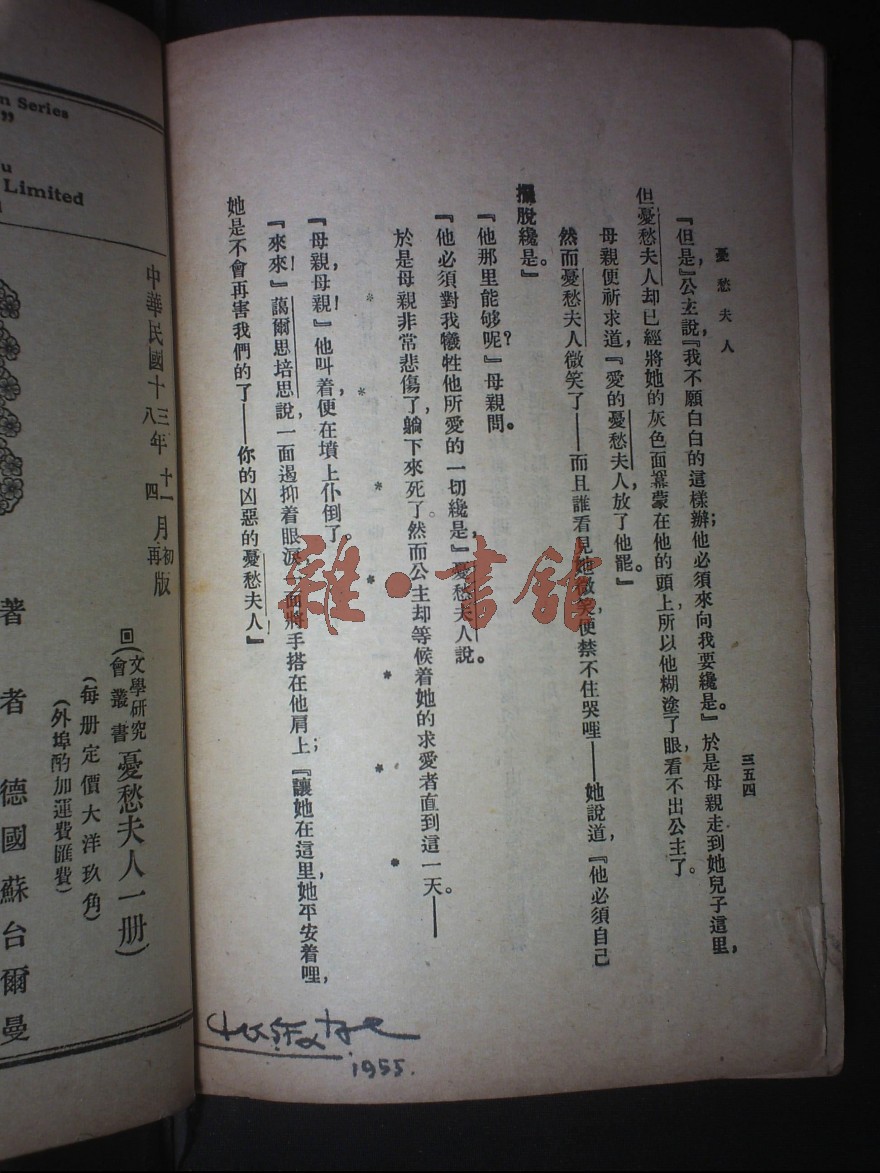 憂愁夫人
三五四
『但是，』公主說，『我不願白白的這樣辦；他必須來向我要纔是。』於是母親走到她兒子這里，
但憂愁夫人却已經將她的灰色面冪蒙在他的頭上，所以他糊塗了眼，看不出公主了。
母親便祈求道，『愛的憂愁夫人，放了他罷。』
然而憂愁夫人微笑了——而且誰看見她微笑，便禁不住哭哩——她說道，『他必須自己
擺脫纔是。』
『他那里能够呢？』母親問。
『他必須對我犧牲他所愛的一切纔是，』憂愁夫人說。
於是母親非常悲傷了，躺下來死了。然而公主却等候着她的求愛者直到這一天。——
* * * * * * * *
『母親，母親！』他叫着，便在墳上仆倒了。
『來，來！』藹爾思培思說，一面遏抑着眼淚，一面將手搭在他肩上；『讓她在這里，她平安着哩，
她是不會再害我們的了——你的凶惡的憂愁夫人！』
1955.
n Series
”
u
Limited
中華民國十三年十一月初版
八 四 再
回(文學研究會叢書憂愁夫人一册)
(每册定價大洋玖角)
(外埠酌加運費匯費)
著者 德國蘇台爾曼
雜·書館